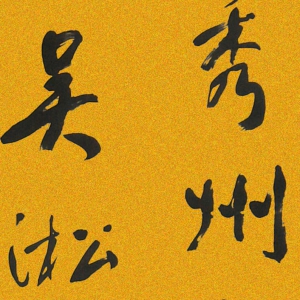 秀州
吴淞